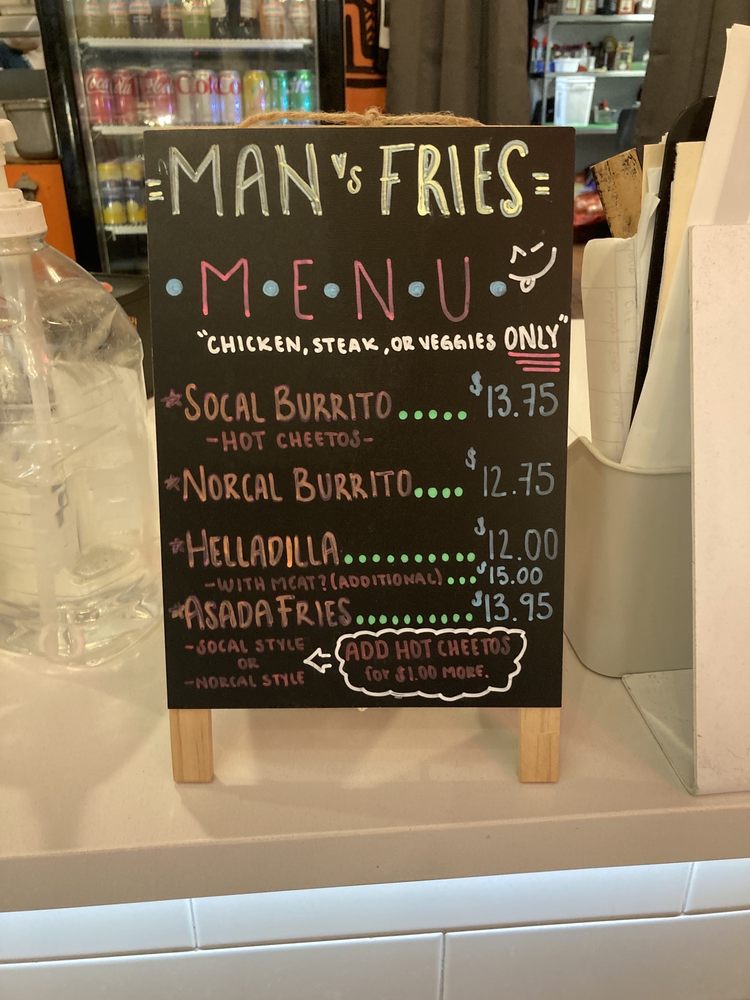 =MAN vs FRIES=
• M • E • N • U •
"CHICKEN, STEAK, OR VEGGIES ONLY"
*SOCAL BURRITO..... $13.75
-HOT CHEETOS-
*NORCAL BURRITO.... $12.75
*HELLADILLA.......... $12.00
-WITH MEAT? (ADDITIONAL)... $15.00
*ASADA FRIES........... $13.95
-SOCAL STYLE
OR
-NORCAL STYLE
ADD HOT CHEETOS
for $1.00 MORE.